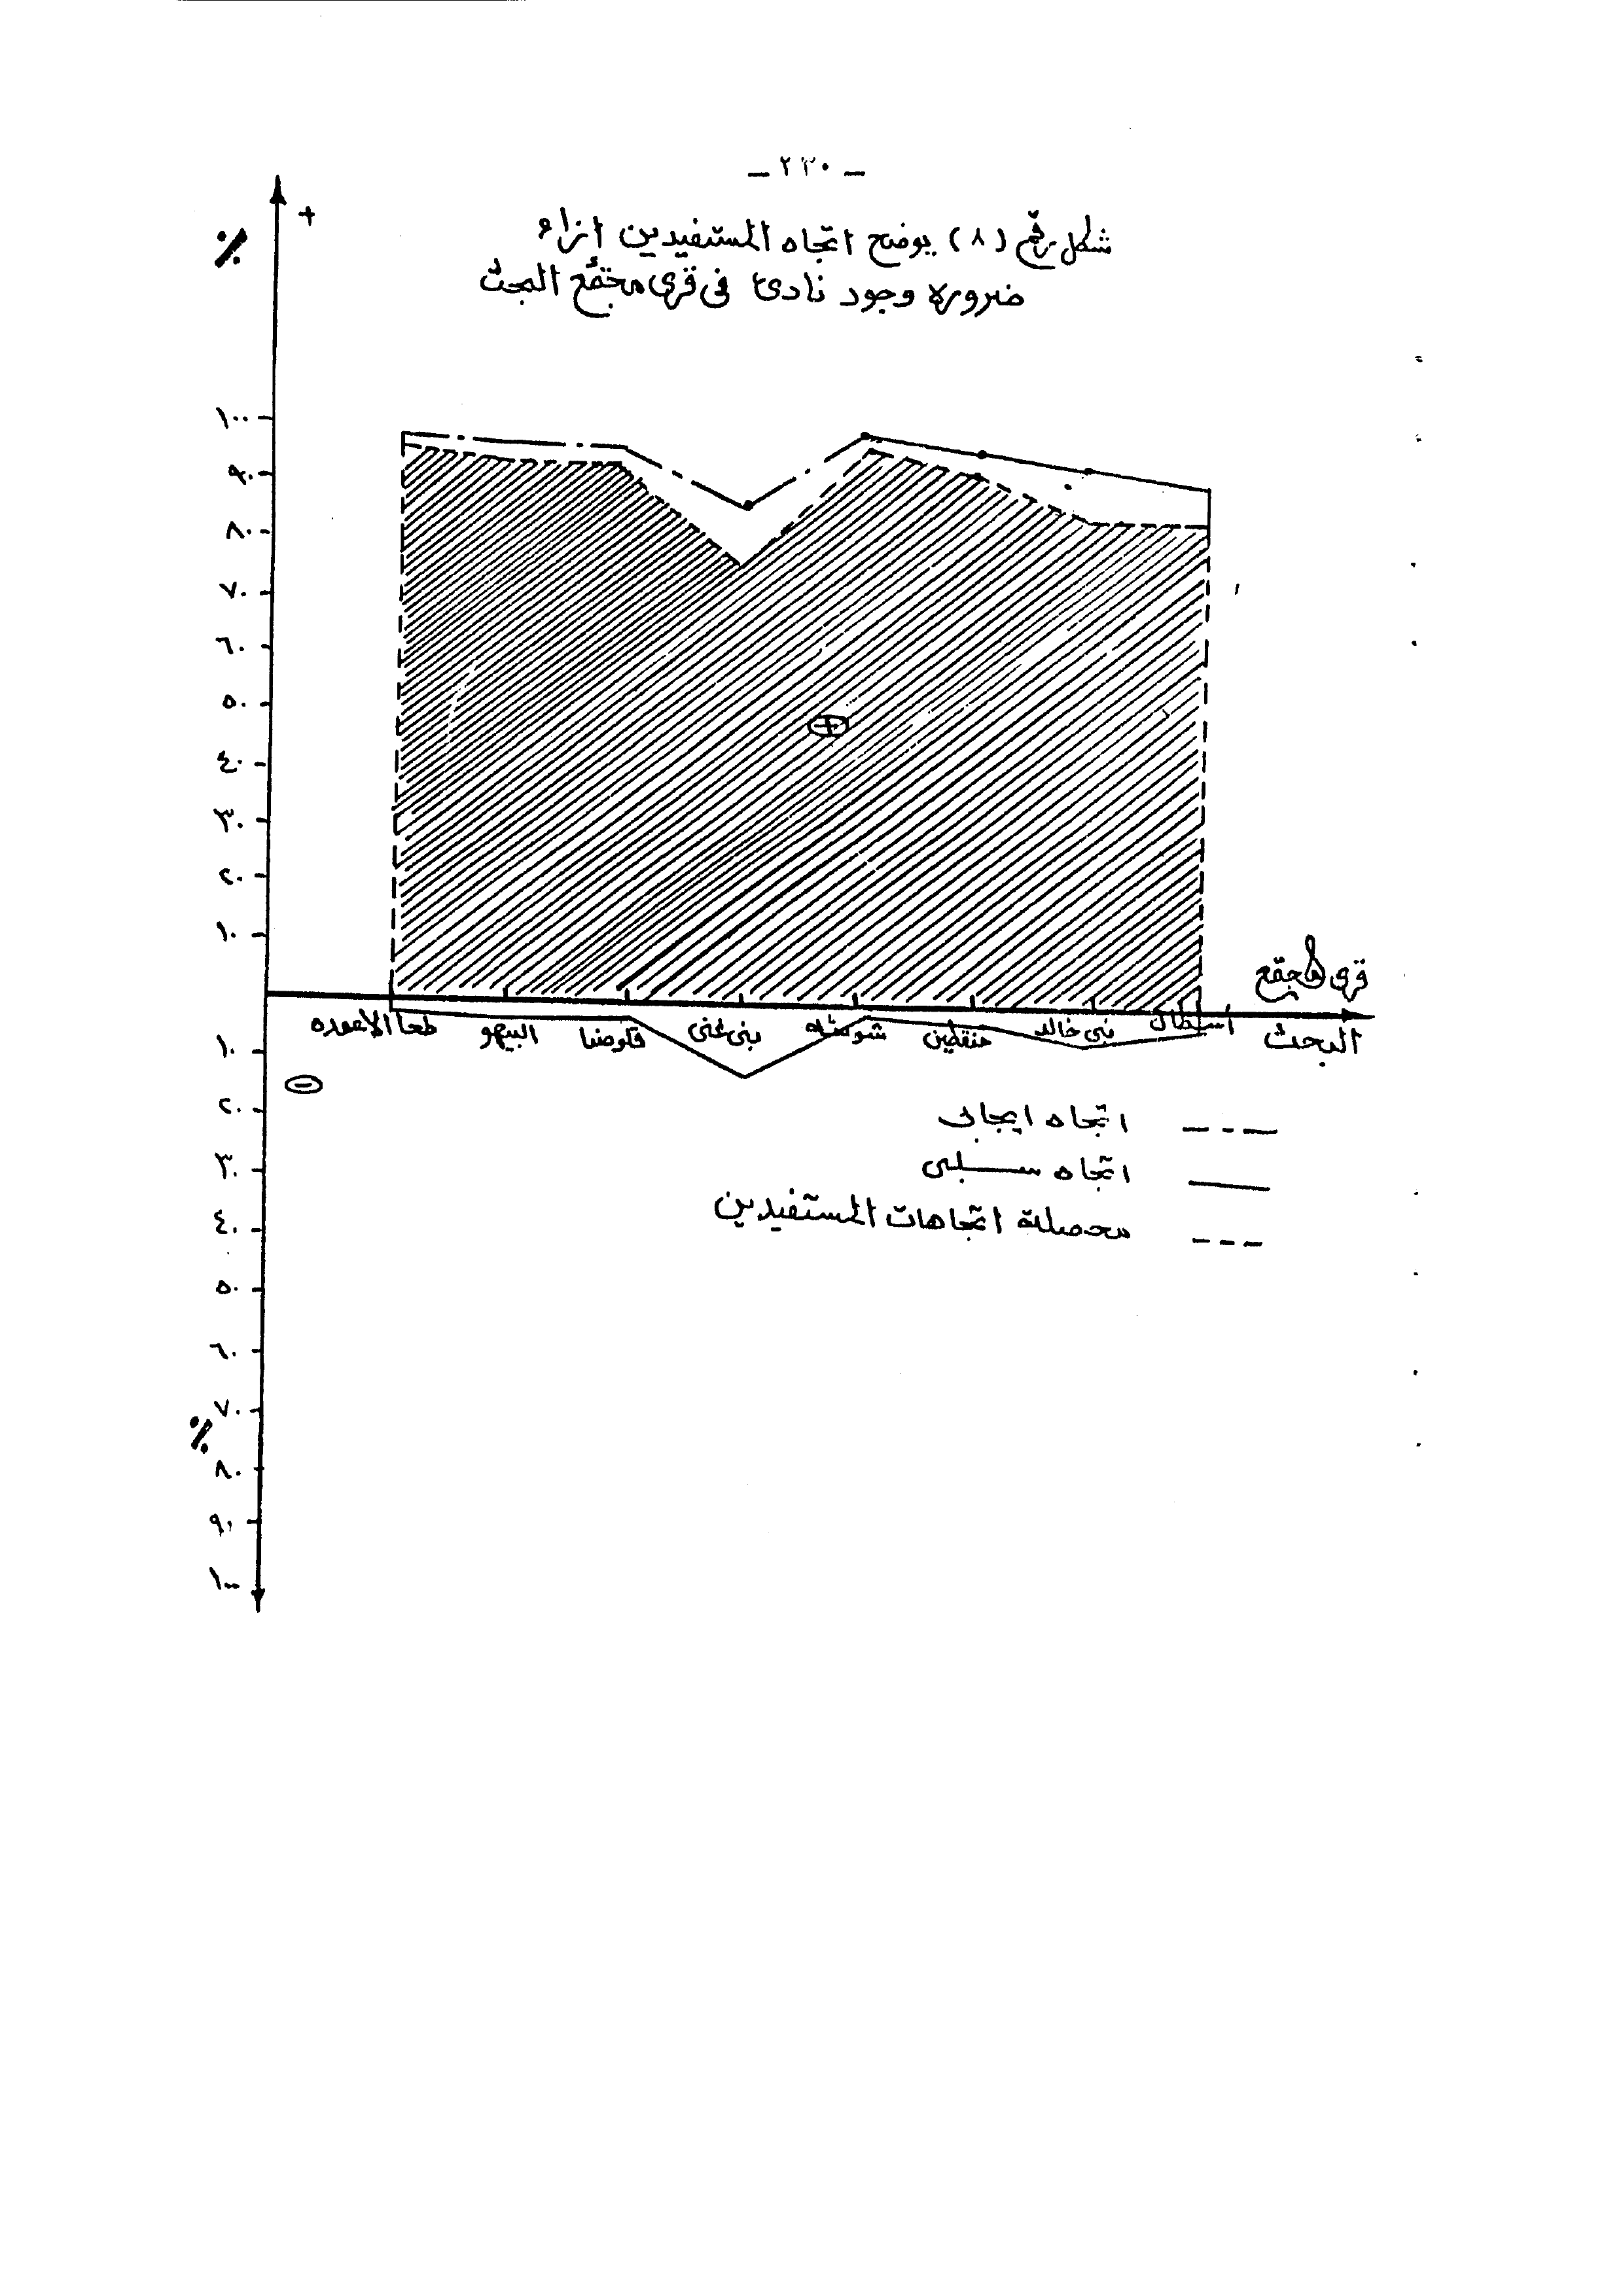 - ٢٣٠ -
شكل رقم (٨) يوضح اتجاه المستفيدين ازاء
ضروره وجود نادى فى قرى مجتمع البحث
+
٪
١٠٠
٩٠
٨٠
٧٠
٦٠
٥٠
٤٠
٣٠
٢٠
١٠
+
قرى المجتمع
البحث
طحا الاعمده
البيهو
قلوصنا
بنى غنى
شوشه
منقطين
بنى خالد
اسطال
١٠
٢٠
٣٠
٤٠
٥٠
٦٠
٧٠
٨٠
٩٠
١٠٠
-
٪
اتجاه ايجابى
اتجاه سلبى
محصلة اتجاهات المستفيدين